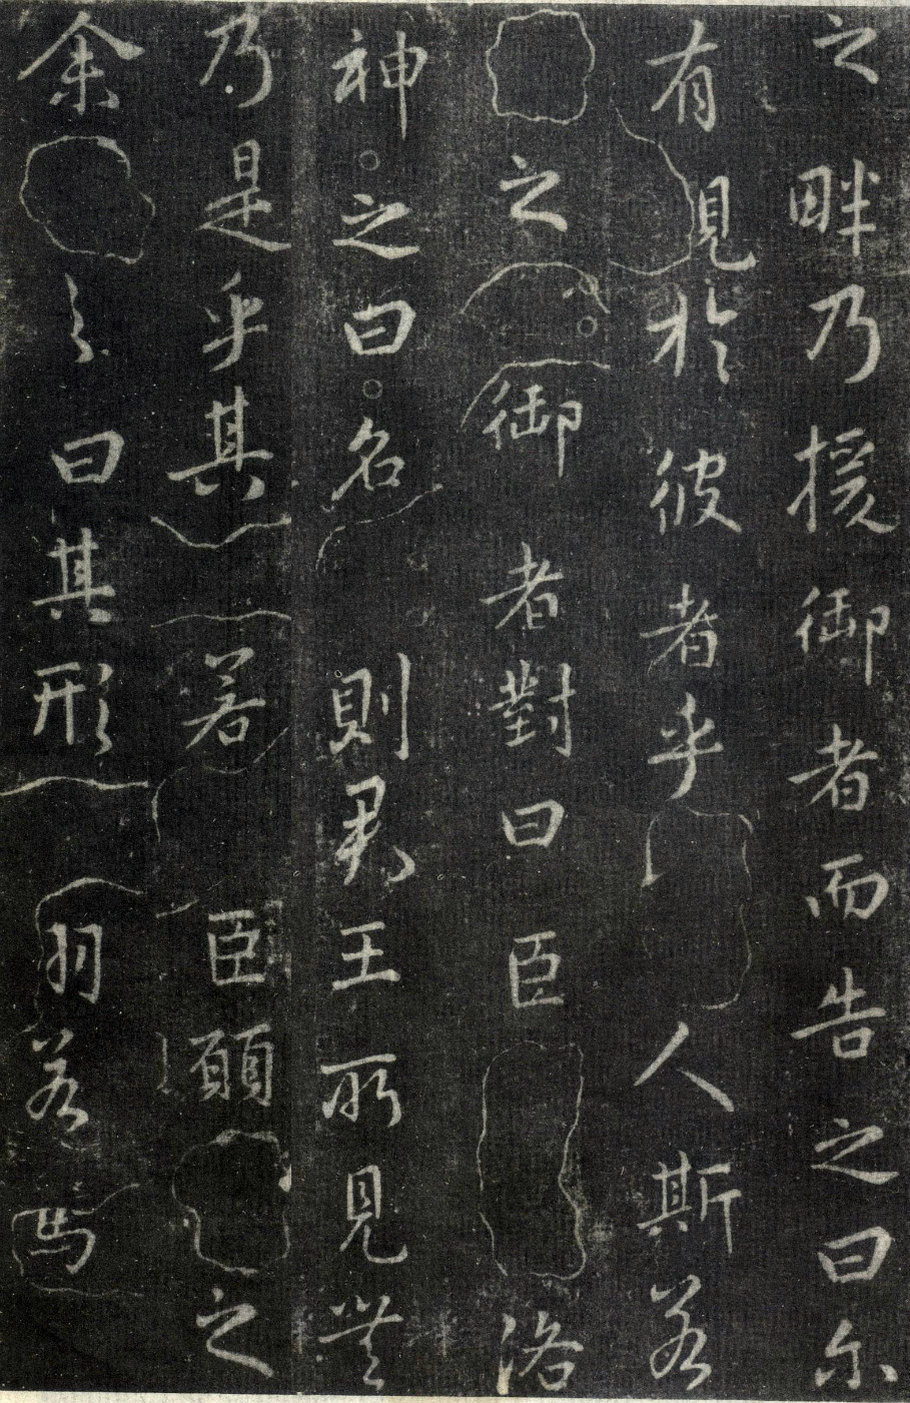 之畔乃援御者而告之曰尔
有見於彼者乎人斯若
之御者對曰臣洛
神之曰名則君王所見無
乃是乎其若臣願之
余曰其形羽若馬